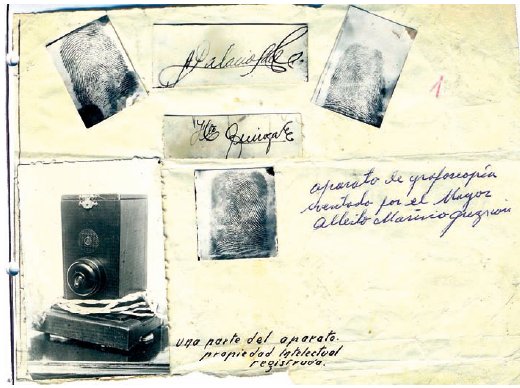 Palacio
1
Quiroga
aparato de grafoscopía
inventado por el Mayor
Alberto Marino
una parte del aparato.
propiedad Intelectual
registrada.